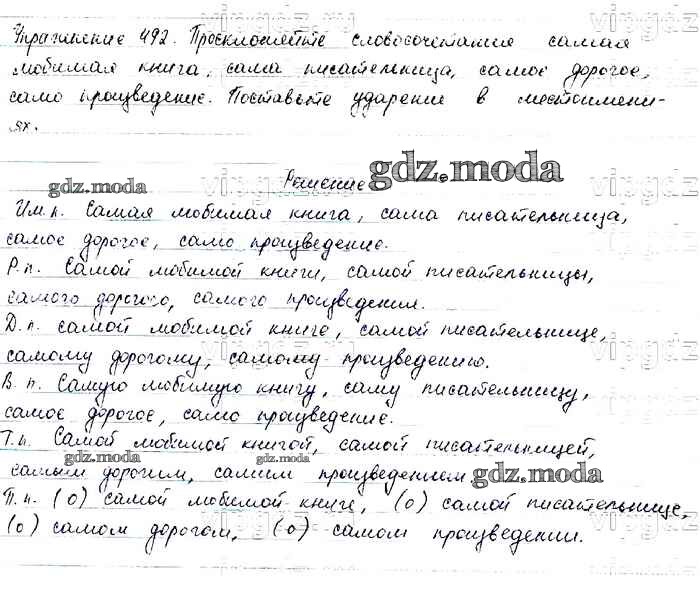 Упражнение 492. Просклоняйте словосочетания самая
любимая книга, сама писательница, самое дорогое,
само произведение. Поставьте ударение в местоимени-
ях.
gdz.moda
Решение
gdz.moda
И.м.п. Самая любимая книга, сама писательница,
самое дорогое, само произведение.
Р.п. Самой любимой книги, самой писательницы,
самого дорогого, самого произведения.
Д.п. самой любимой книге, самой писательнице,
самому дорогому, самому произведению.
В.п. Самую любимую книгу, саму писательницу,
самое дорогое, само произведение.
Т.п. Самой любимой книгой, самой писательницей,
gdz.moda gdz.moda
самым дорогим, самим произведением
gdz.moda
П.п. (о) самой любимой книге, (о) самой писательнице,
(о) самом дорогом, (о) самом произведении.